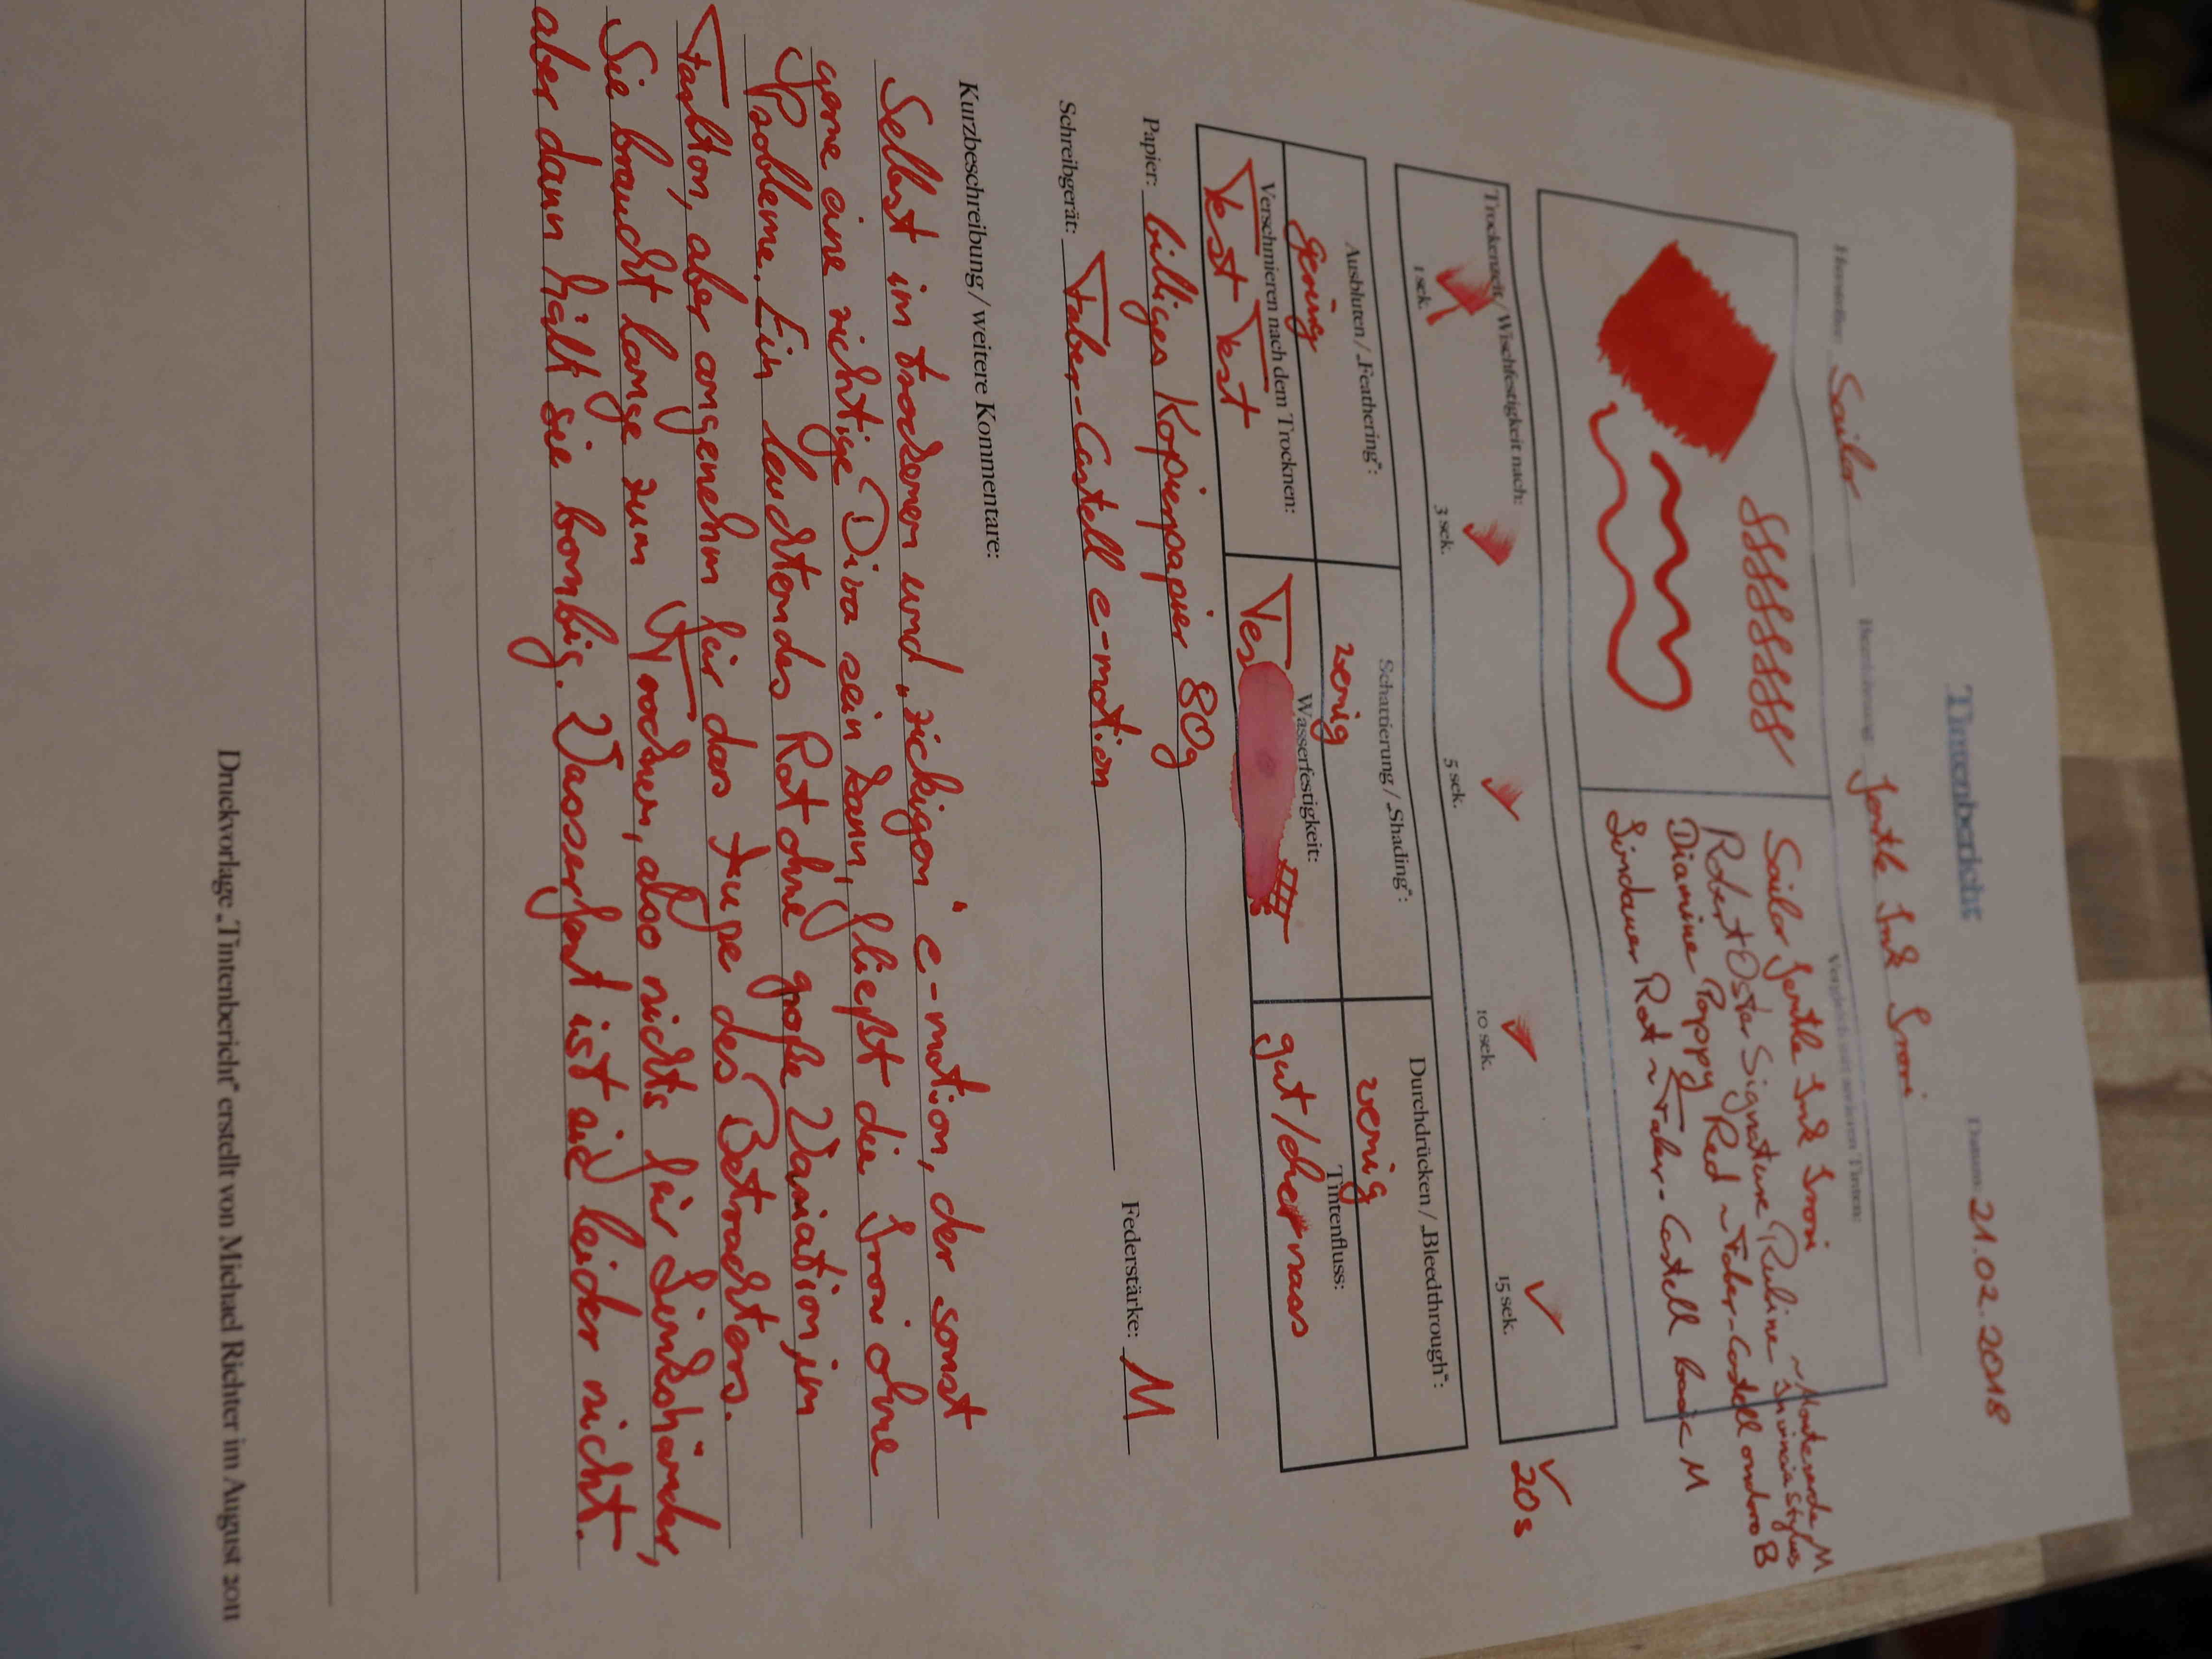 Tintenbericht
Datum: 21.02.2018
Hersteller: Sailor Bezeichnung: Jentle Ink Irori
Vergleich mit anderen Tinten:
Sailor Jentle Ink Irori ~ Monteverde M
Robert Oster Signature Rubine - Invincia Stylus
Diamine Poppy Red ~ Faber-Castell ondoro B
Lindauer Rot ~ Faber-Castell Basic M
Trockenzeit / Wischfestigkeit nach:
1 sek. 3 sek. 5 sek. 10 sek. 15 sek. 20s
Ausbluten / „Feathering“: Schattierung / „Shading“: Durchdrücken / „Bleedthrough“:
gering wenig wenig
Verschmieren nach dem Trocknen: Wasserfestigkeit: Tintenfluss:
Test Test Tes gut/eher nass
Papier: billiges Kopierpapier 80g
Schreibgerät: Faber-Castell e-motion Federstärke: M
Kurzbeschreibung / weitere Kommentare:
Selbst im trockenen und „zickigen“ e-motion, der sonst
gerne eine richtige Diva sein kann, fließt die Irori ohne
Probleme. Ein leuchtendes Rot ohne große Variation im
Farbton, aber angenehm für das Auge des Betrachters.
Sie braucht lange zum Trocknen, also nichts für Linkshänder,
aber dann hält sie bombig. Wasserfest ist sie leider nicht.
Druckvorlage „Tintenbericht“ erstellt von Michael Richter im August 2011